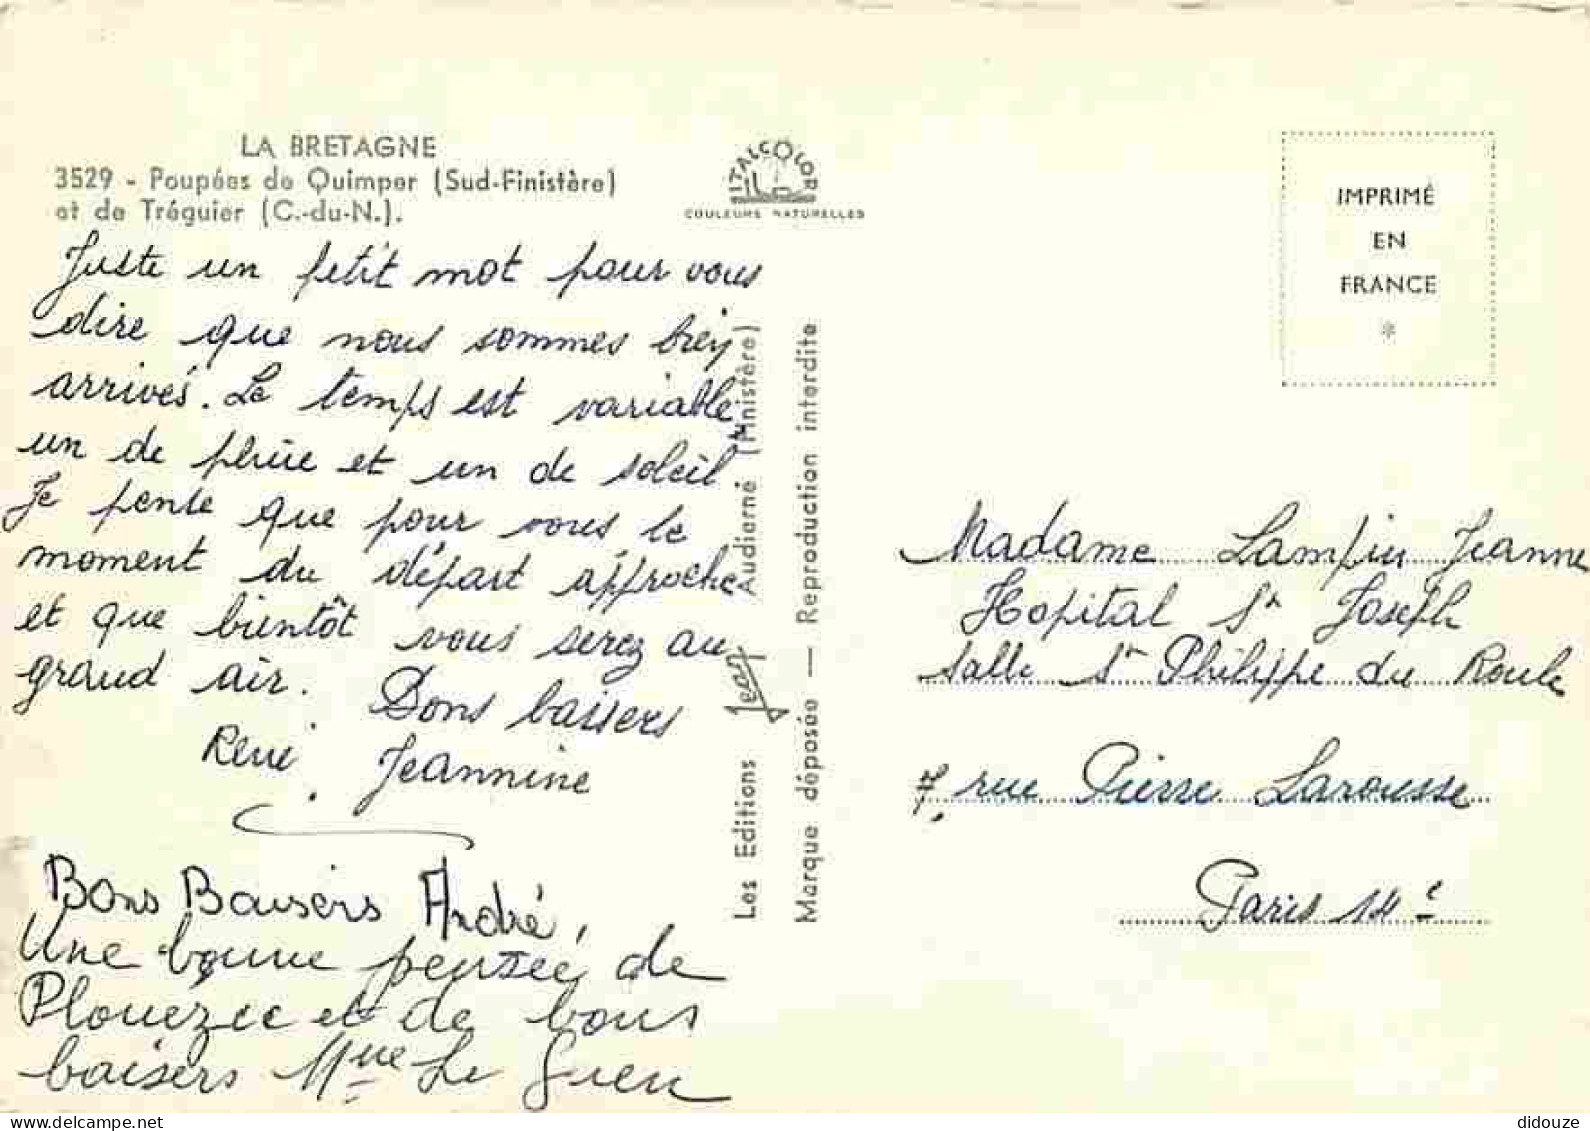 LA BRETAGNE
3529 - Poupées de Quimper (Sud-Finistère)
et de Tréguier (C.-du-N.).
Juste un petit mot pour vous
dire que nous sommes bien
arrivés. Le temps est variable
un de pluie et un de soleil
Je pense que pour vous le
moment du départ approche
et que bientôt vous serez au
grand air.
Bons baisers
René, Jeannine
Bons Baisers André,
Une bonne pensée de
Plouezec et de bons
baisers Mme Le Guen
ITALCOLOR
COULEURS NATURELLES
Les Editions Jean Audierne (Finistère)
Marque déposée — Reproduction interdite
IMPRIMÉ
EN
FRANCE
*
Madame Lampin Jeanne
Hopital St Joseph
salle St Philippe du Roule
7, rue Pierre Larousse
Paris 14e
didouze